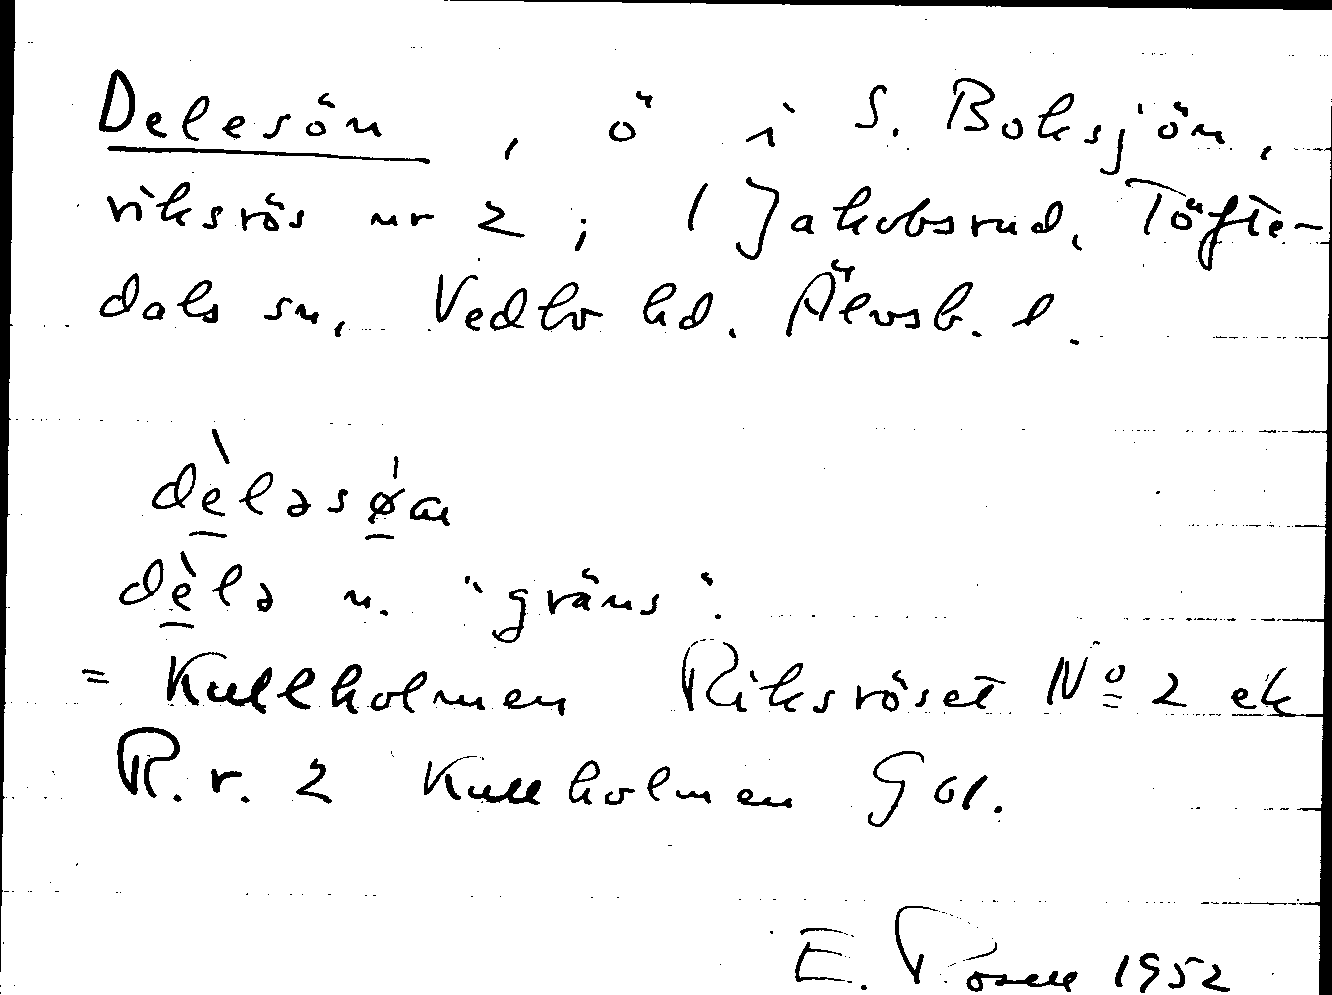 Delesön, ö i S. Boksjön,
riksrös nr 2; 1 Jakobsrud, Töfte-
dals sn, Vedbo hd. Älvsb. l.
dè̱ləsǿ̱n
dè̱lə n. "gräns".
= Kullholmen Riksröset No 2 ek
R. r. 2 Kullholmen
E. Rosell 1952